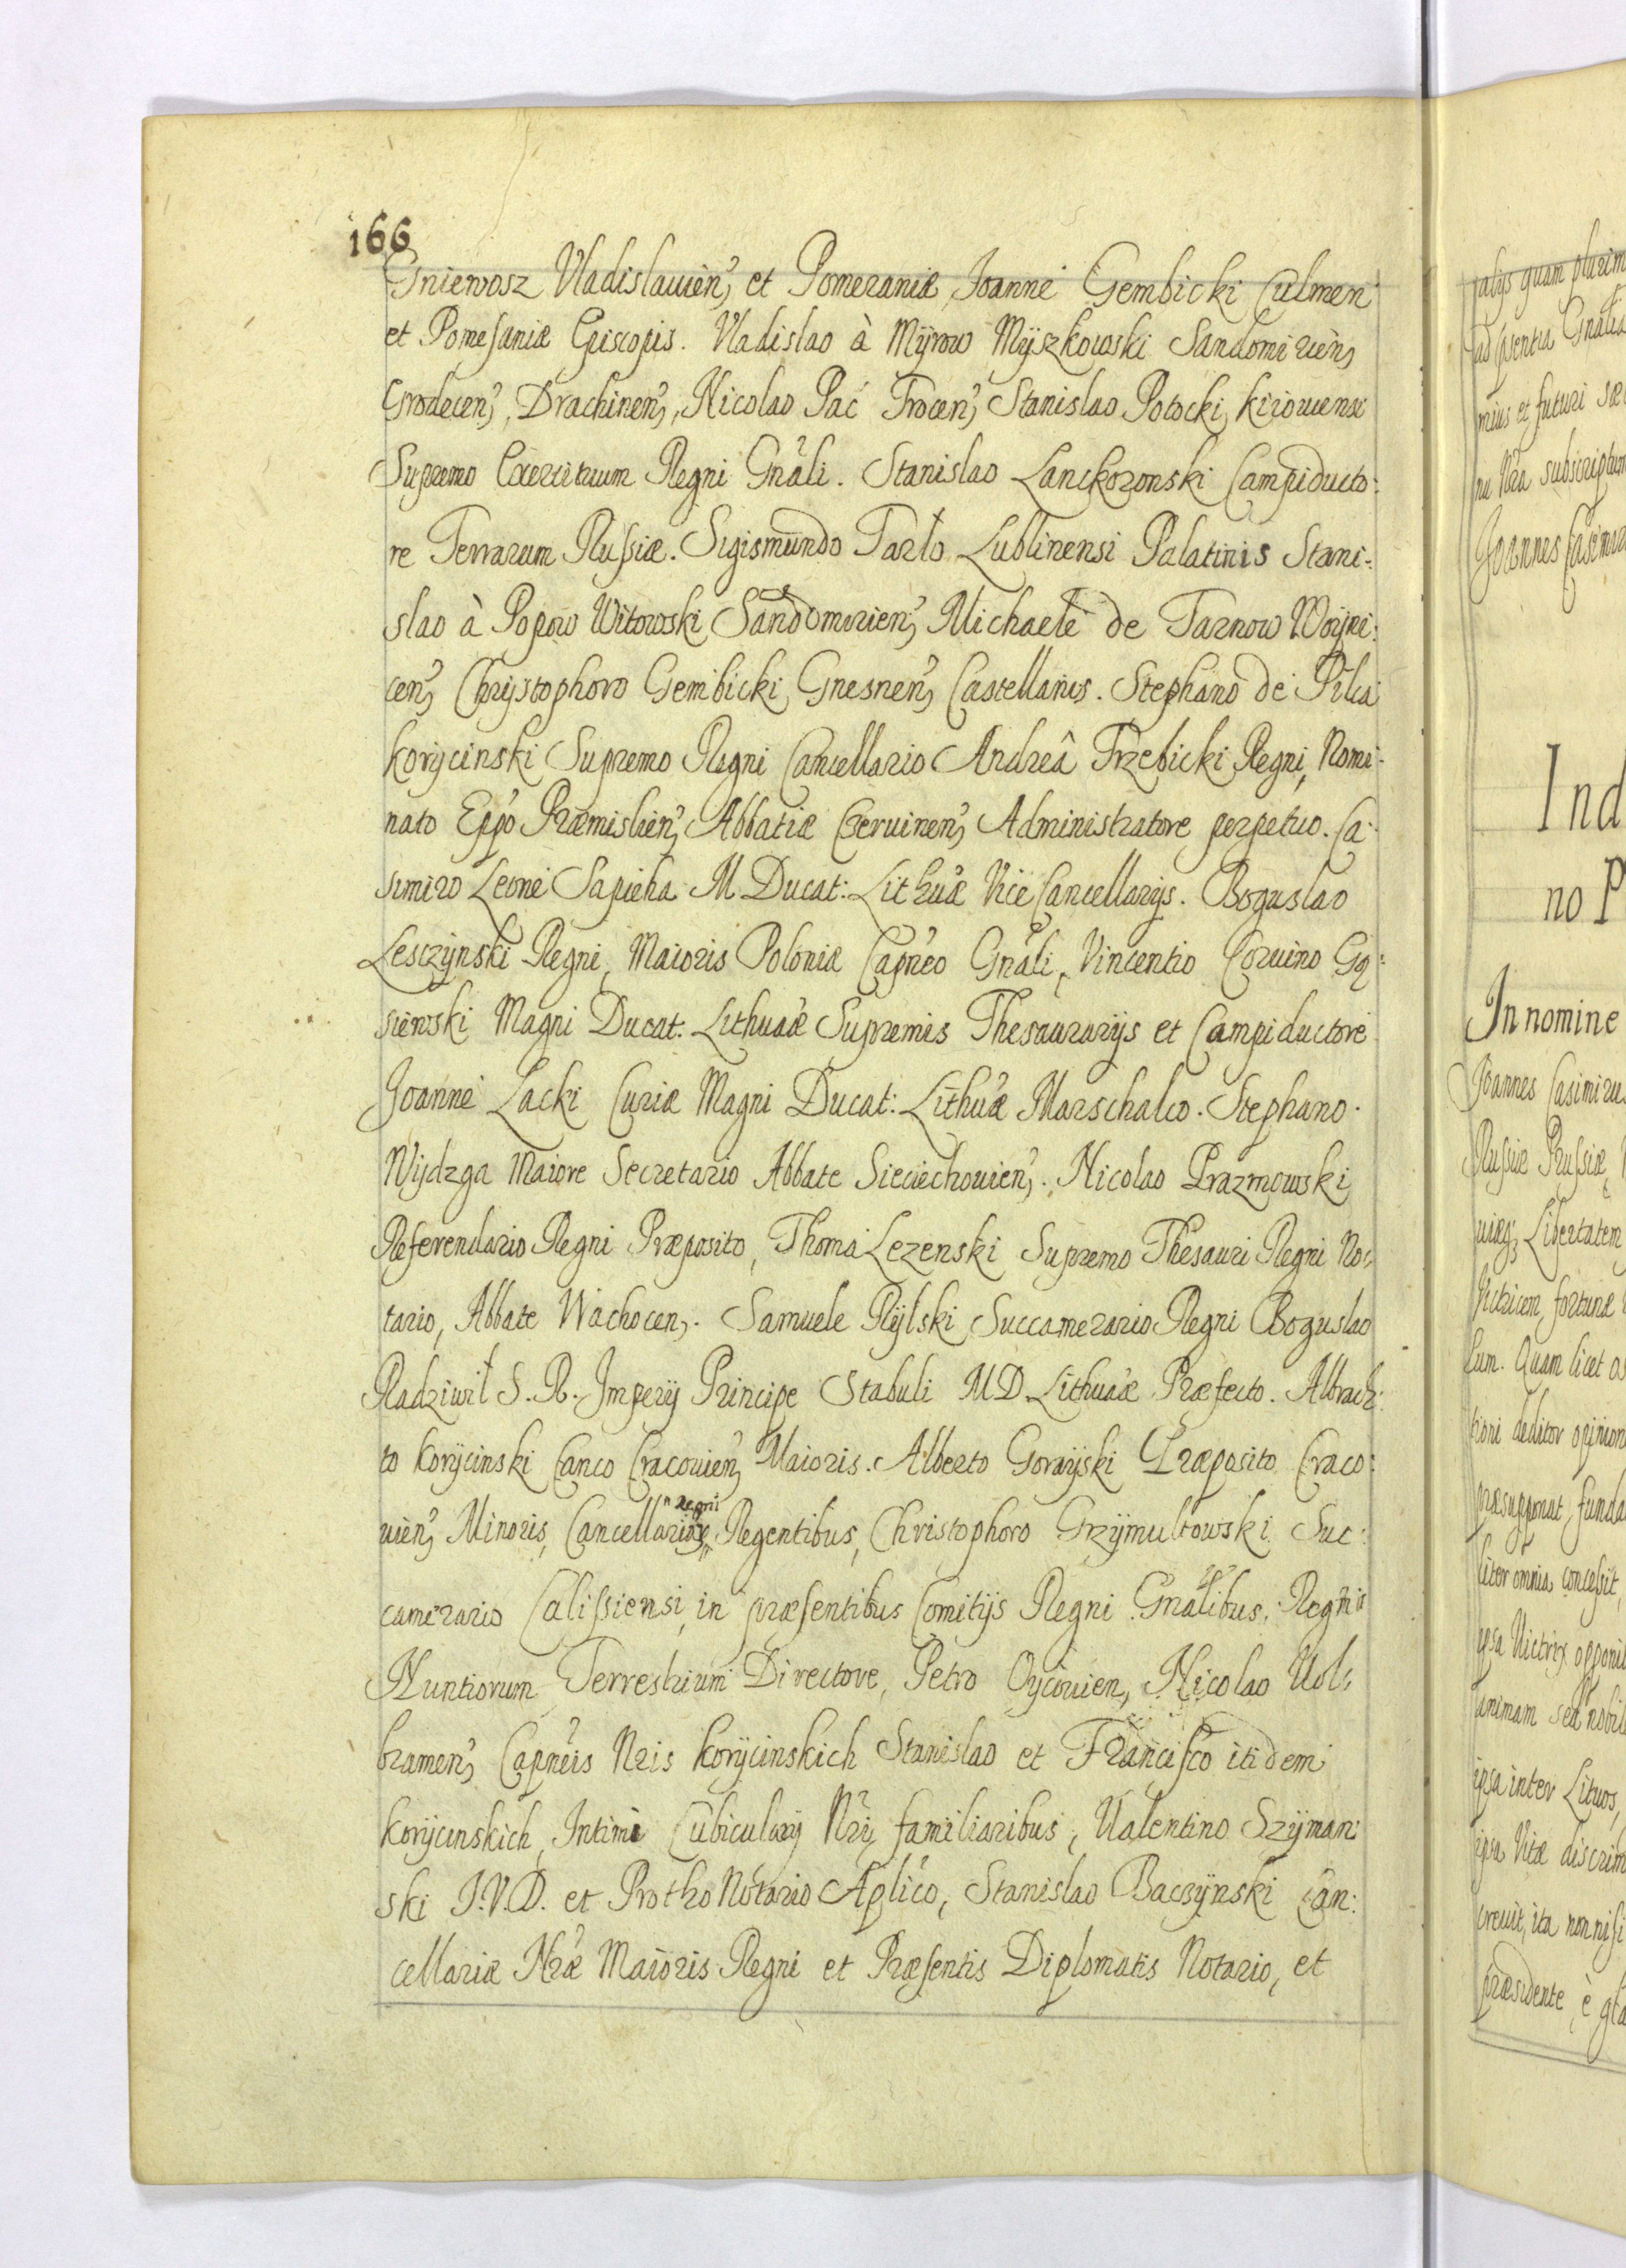 166
Gniewosz Vladislauien, et Pomeraniæ, Joanne Gembicki Culmen
et Pomesaniæ Episcopis. Vladislao à Mÿrow Mÿszkowski Sandomirien,
Grodecen, Drachinen, Nicolao Pać Trocen, Stanislao Potocki, kiiowiensi
Supremo Exercituum Regni Gnâli. Stanislao Lanckoronski Campiducto:
re Terrarum Russiæ. Sigismundo Tarło Lublinensi Palatinis Stani:
slao à Popow Witowski Sandomirien, Michaele de Tarnow Woÿni:
cen, Chrÿstophoro Gembicki, Gnesnen, Castellanis. Stephano de Pilca
korÿcinski Supremo Regni Cancellario Andreâ Trzebicki Regni, Nomi:
nato Eppo Præmislien, Abbatiæ Czeruinen, Administratore perpetuo. Ca:
simiro Leone Sapieha M Ducat: Lithuæ Vice Cancellarÿs. Boguslao
Lesczÿnski Regni, Maioris Poloniæ Capneo Gnâli, Vincentio Coruino Gą:
siewski Magni Ducat. Lithuaæ Supremis Thesaurarÿs et Campiductore
Joanne Lacki Curiæ Magni Ducat: Lithuæ Marschalco. Stephano
Wÿdzga Maiore Secretario Abbate Sieciechouien,. Nicolao Prazmowski
Referendario Regni Præposito, Thoma Lezenski Supremo Thesauri Regni No:
tario, Abbate Wachocen,. Samuele Rÿlski Succamerario Regni Boguslao
Radziwił S. R. Imperÿ Principe Stabuli M D Lithuaæ Præfecto. Albrach:
to korÿcinski Canco Cracouien, Maioris. Alberto Goraÿski Præposito Craco:
uien, Minoris, Cancellariæ Regni Regentibus, Christophoro Grzÿmułtowski Suc:
camerario Calissiensi, in præsentibus Comitÿs Regni Gnâlibus, Regnis
Nuntiorum Terrestrium Directore, Petro Oÿcouien, Nicolao Uol:
bramen, Capneis Nris korÿcinskich Stanislao et Francisco itidem
korÿcinskich, Intimi Cubicularÿ Nri, familiaribus, Ualentino Szÿman:
ski J.V.D. et Protho Notario Aplico, Stanislao Baczÿnski Can:
cellariæ Nræ Maioris Regni et Præsentis Diplomatis Notario, et
Ind
no P
In nomine
Joannes Casimirus
Russiæ Prussiæ,
Libertatem
Victricem fortunæ
lum. Quam licet
deditor opinion
præsupponat, funda
liter omnia concessit,
ipsa Victrix
animam sed nobil
ipsa inter Lituos,
ipsa Vitæ discrim
creuit, ita non nisi
præsidente, è gla